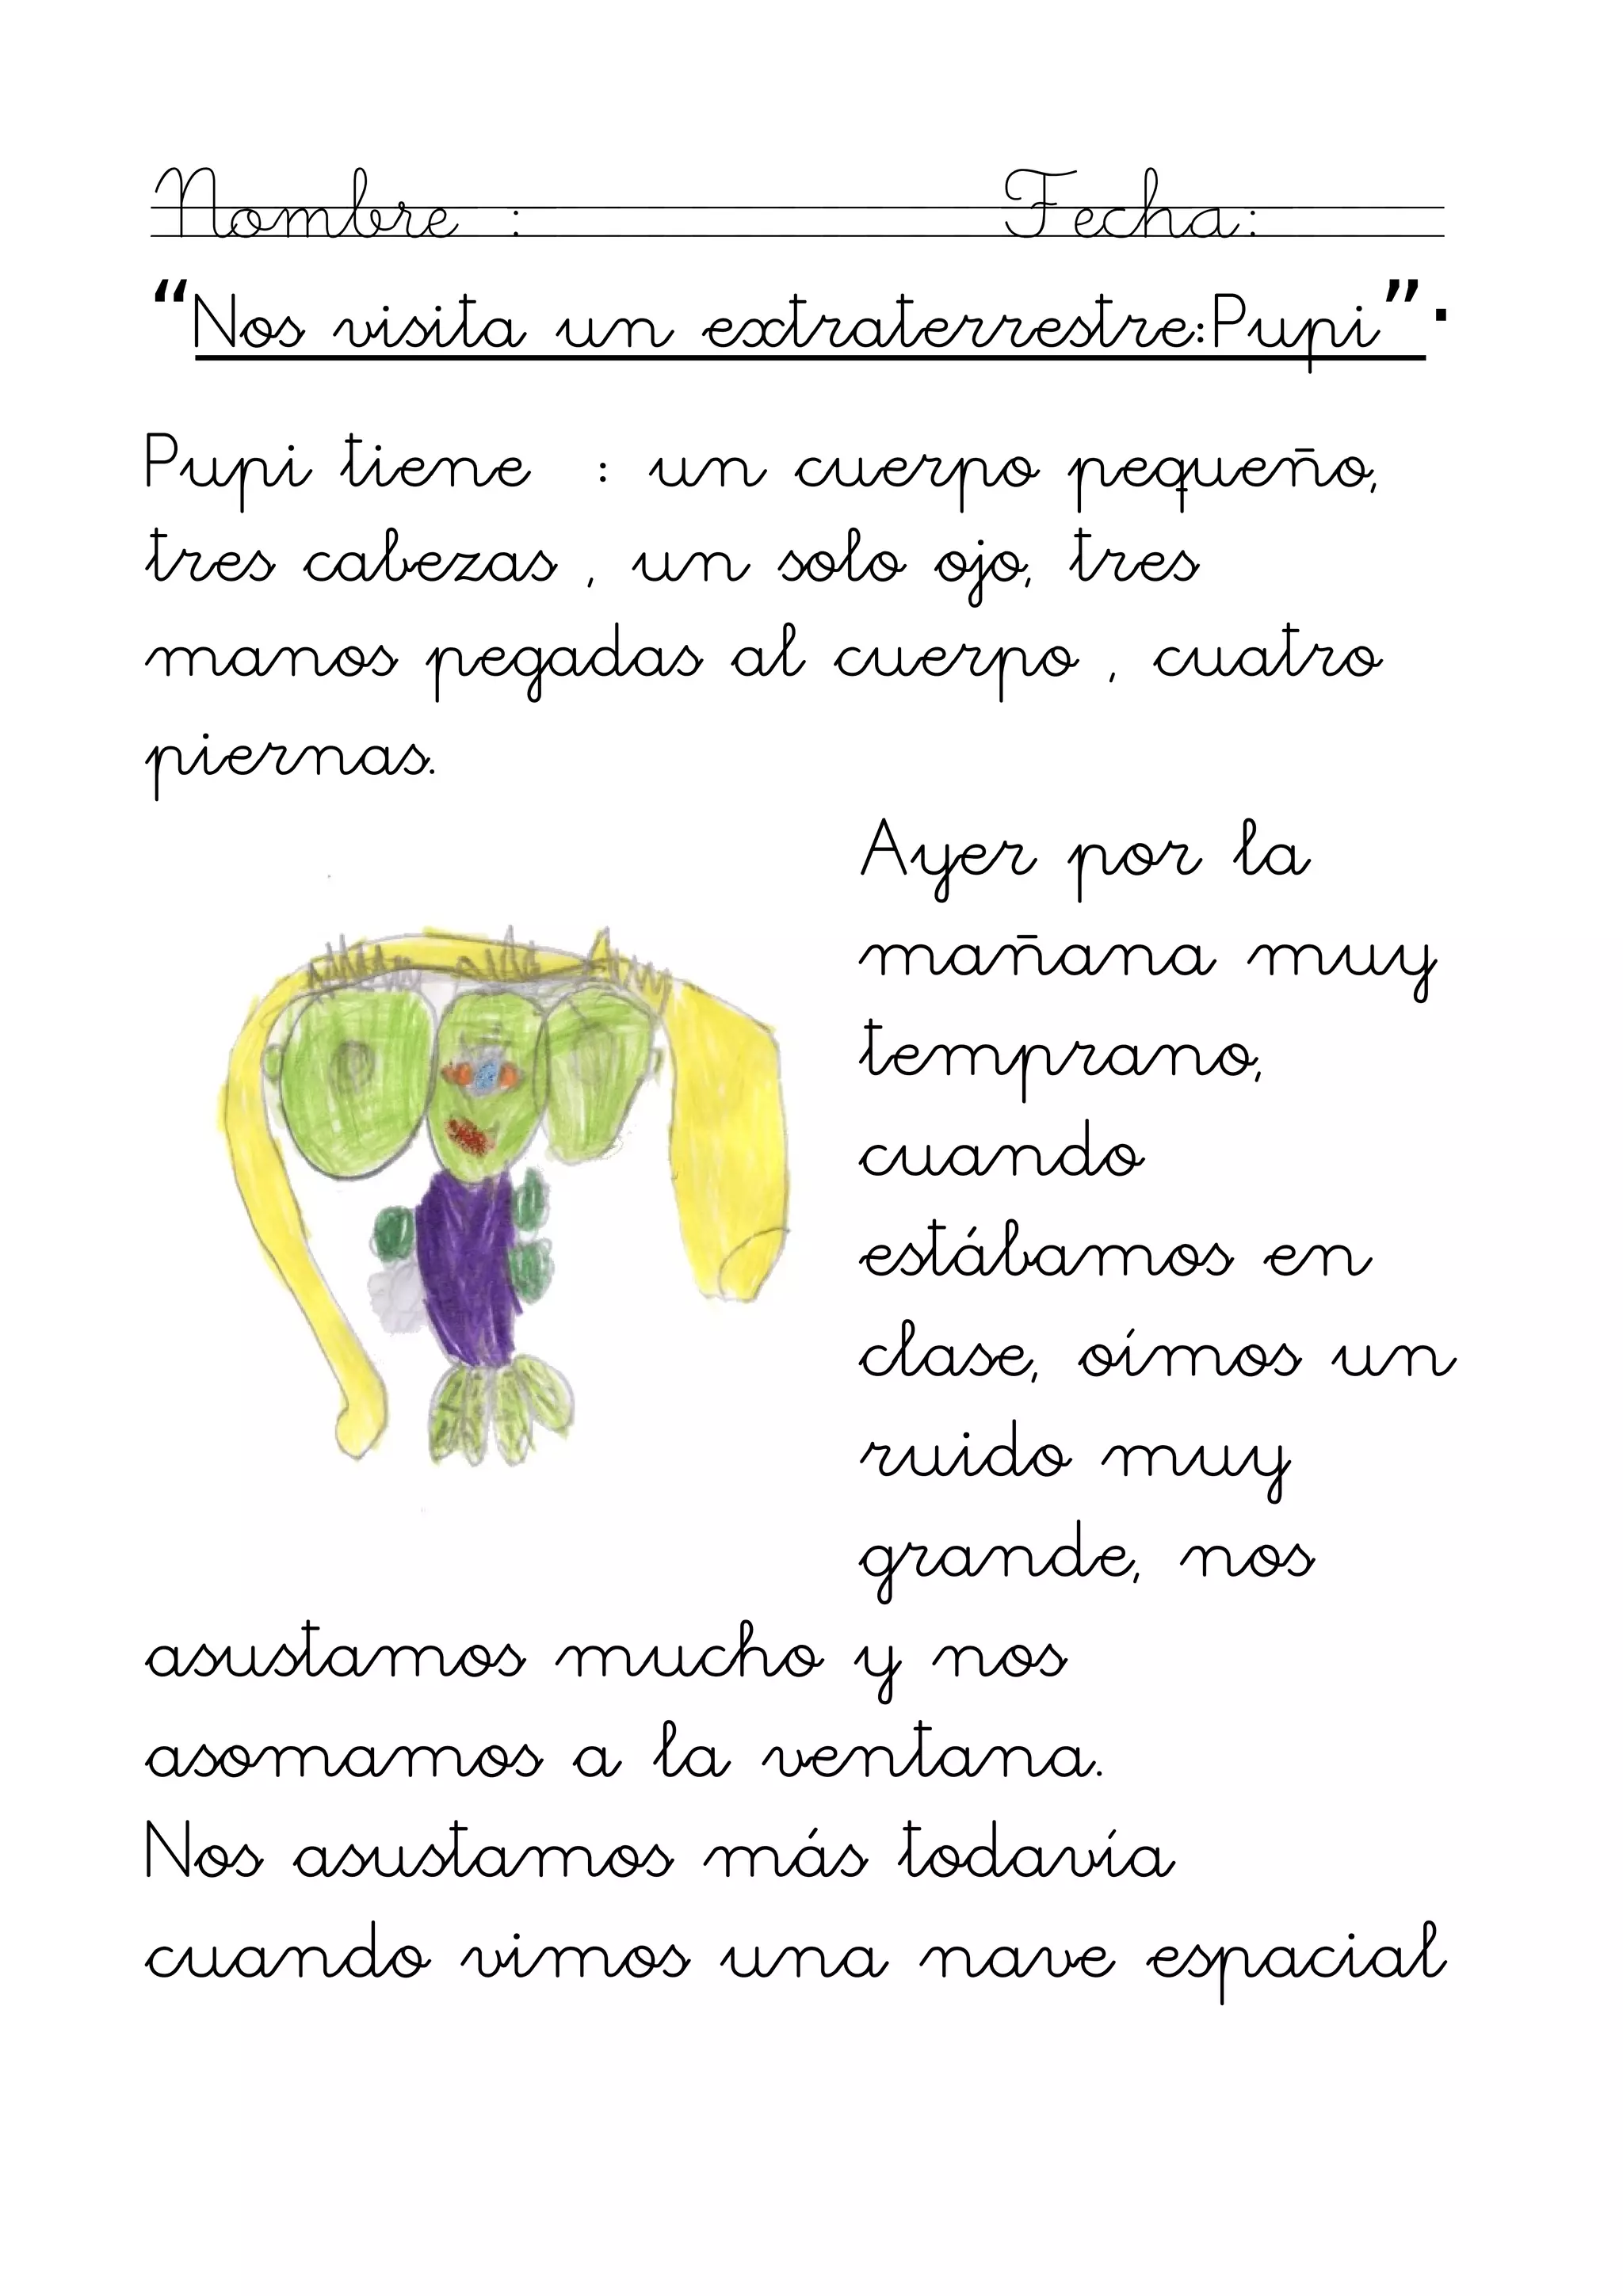 Nombre : Fecha:
“Nos visita un extraterrestre:Pupi”.
Pupi tiene : un cuerpo pequeño,
tres cabezas , un solo ojo, tres
manos pegadas al cuerpo , cuatro
piernas.
Ayer por la
mañana muy
temprano,
cuando
estábamos en
clase, oímos un
ruido muy
grande, nos
asustamos mucho y nos
asomamos a la ventana.
Nos asustamos más todavía
cuando vimos una nave espacial